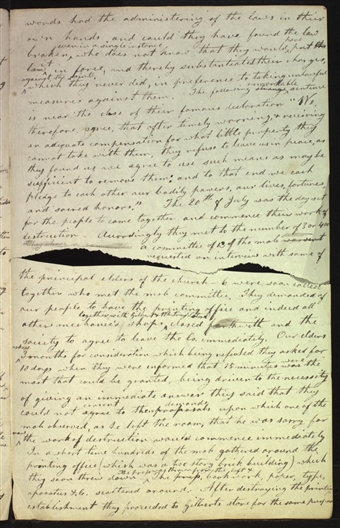 words had the administering of the laws in their
own hands and could they have found the law
even in a single instance have
broken, who does not know that they would, put this
law in force, and thereby substantiated their charges,
against the saints,
which they never did, in preference to taking unlawful
remarkable
measures against them. The following strange sentence
is near the close of their famous declaration "We,
therefore, agree, that after timely warning, & receiving
an adequate compensation for what little property they
cannot take with them, they refuse to leave us in peace, as
they found us we agree to use such means as may be
sufficient to remove them: and to that end we each
pledge to each other our bodily powers, our lives, fortunes,
and sacred honors." The 20th of July was the day set
for the people to come together and commence their work of
destruction. Accordingly they met to the number of 3 or
a committee of 13 of the mob
requested an interview with some of
the principal elders of the church 6 were soon called
together who met the mob committee. They demanded of
our people to have the printing office and indeed all
together with Gilbert & Whitney's store
other mechanics shops, closed forthwith and the
society to agree to leave the Co. immediately. Our elders
3 months for consideration which being refused they asked for
10 days when they were informed that 15 minutes was the
most that could be granted, being driven to the necessity
of giving an immediate answer they said that they
demands
could not agree to their proposals upon which one of the
mob observed, as he left the room, that he was sorry for
the work of destruction would commence immediately
In a short time hundreds of the mob gathered around the
printing office (which was a two story brick building) which
they soon threw down. The press, book work, paper, type
apparatus &c. scattered around. After destroying the printing
establishment they proceeded to Gilbert's store for the same purpose